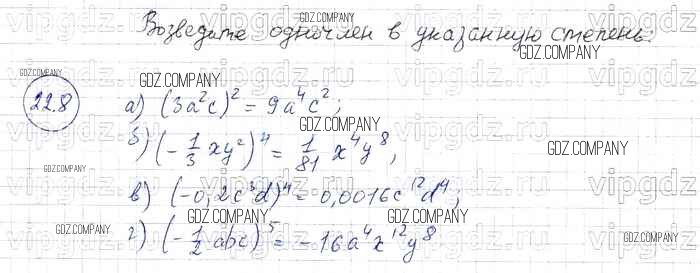 Возведите одночлен в указанную степень:
22.8
а) (3a²c)² = 9a⁴c²;
б) (-1/3 xy²)⁴ = 1/81 x⁴y⁸,
в) (-0,2c³d)⁴ = 0,0016c¹²d⁴;
г) (-1/2 abc)⁵ = -16a⁴x¹²y⁸
GDZ.COMPANY
vipgdz.ru